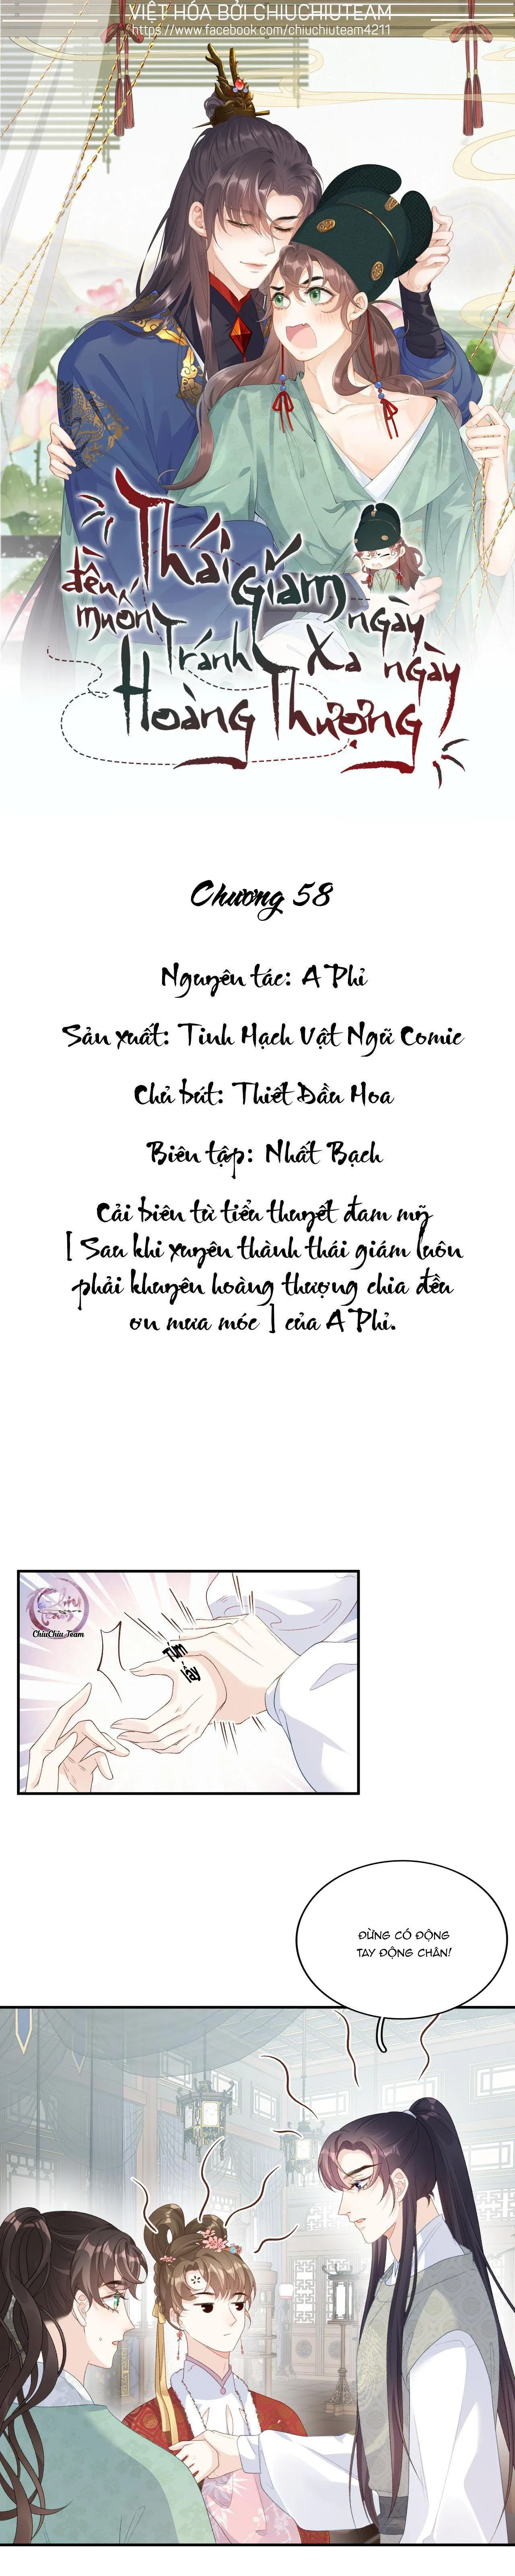 VIỆT HÓA BỞI CHIUCHIUTEAM
https://www.facebook.com/chiuchiuteam4211
Thái Giám ngày
đều muốn Tránh Xa ngày
Hoàng Thượng
Chương 58
Nguyên tác: A Phỉ
Sản xuất: Tinh Mạch Vật Ngữ Comic
Chủ bút: Thiết Đầu Hoa
Biên tập: Nhất Bạch
Cải biên từ tiểu thuyết đam mỹ
[ Sau khi xuyên thành thái giám luôn
phải khuyên hoàng thượng chia đều
ơn mưa móc ] của A Phỉ.
ChiuChiu Team
Túm
lấy
ĐỪNG CÓ ĐỘNG
TAY ĐỘNG CHÂN!